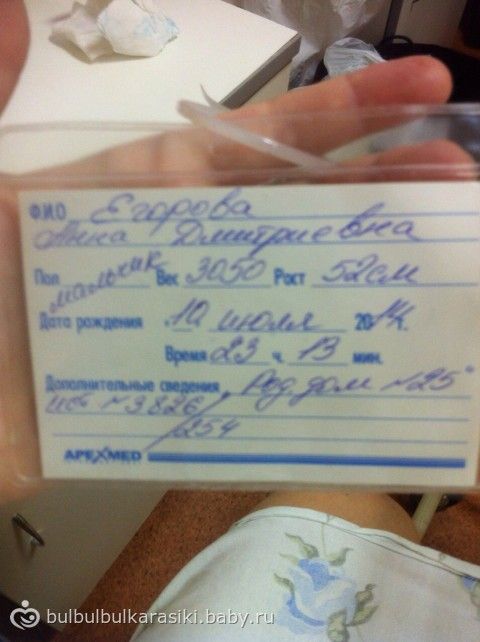 Ф.И.О Егорова
Анна Дмитриевна
Пол мальчик Вес 3050 Рост 52см
Дата рождения 10 июля 2014г.
Время 23 ч. 13 мин.
Дополнительные сведения Род. дом №25
№3826/254
APEXMED
bulbulbulkarasiki.baby.ru